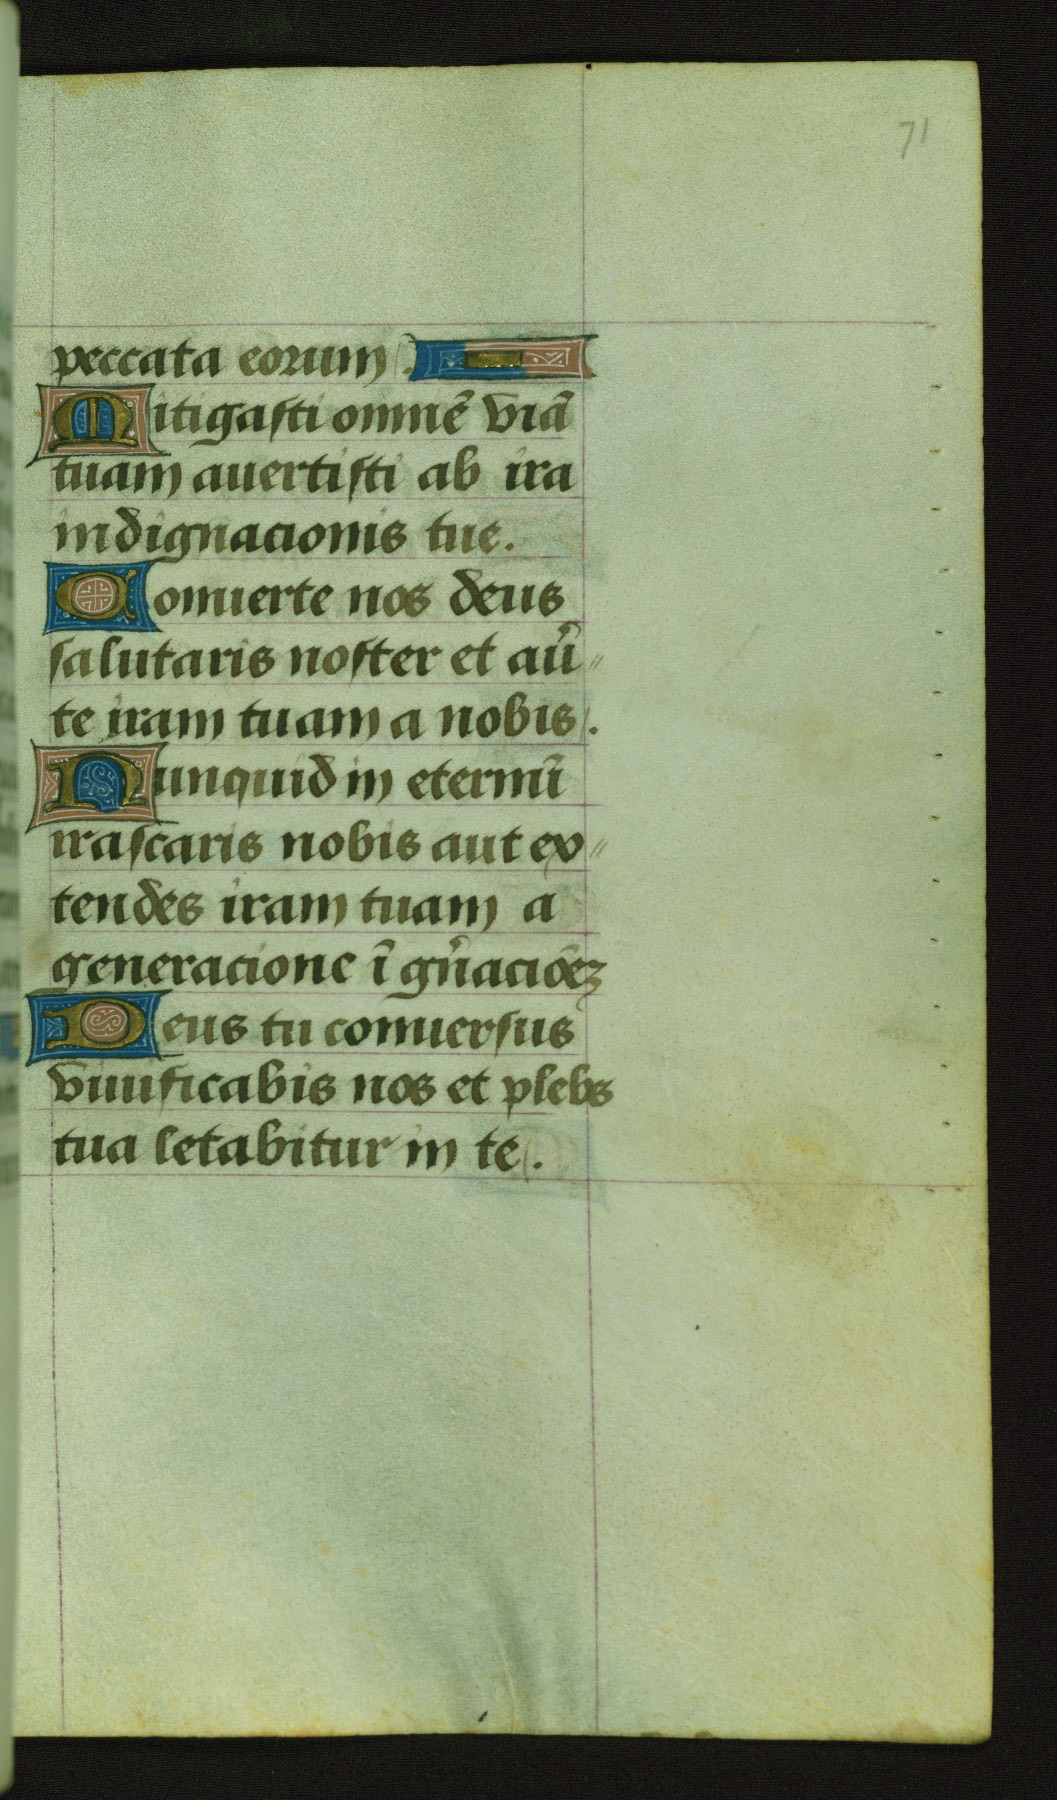 71
peccata eorum.
Mitigasti omnē viā
tuam auertisti ab ira
indignacionis tue.
Conuerte nos deus
salutaris noster et au᷑
te iram tuam a nobis.
Nunquid in eternū
irascaris nobis aut ex
tendes iram tuam a
generacione ī gn̄acioēꝫ
Deus tu conuersus
viuificabis nos et plebs
tua letabitur in te.